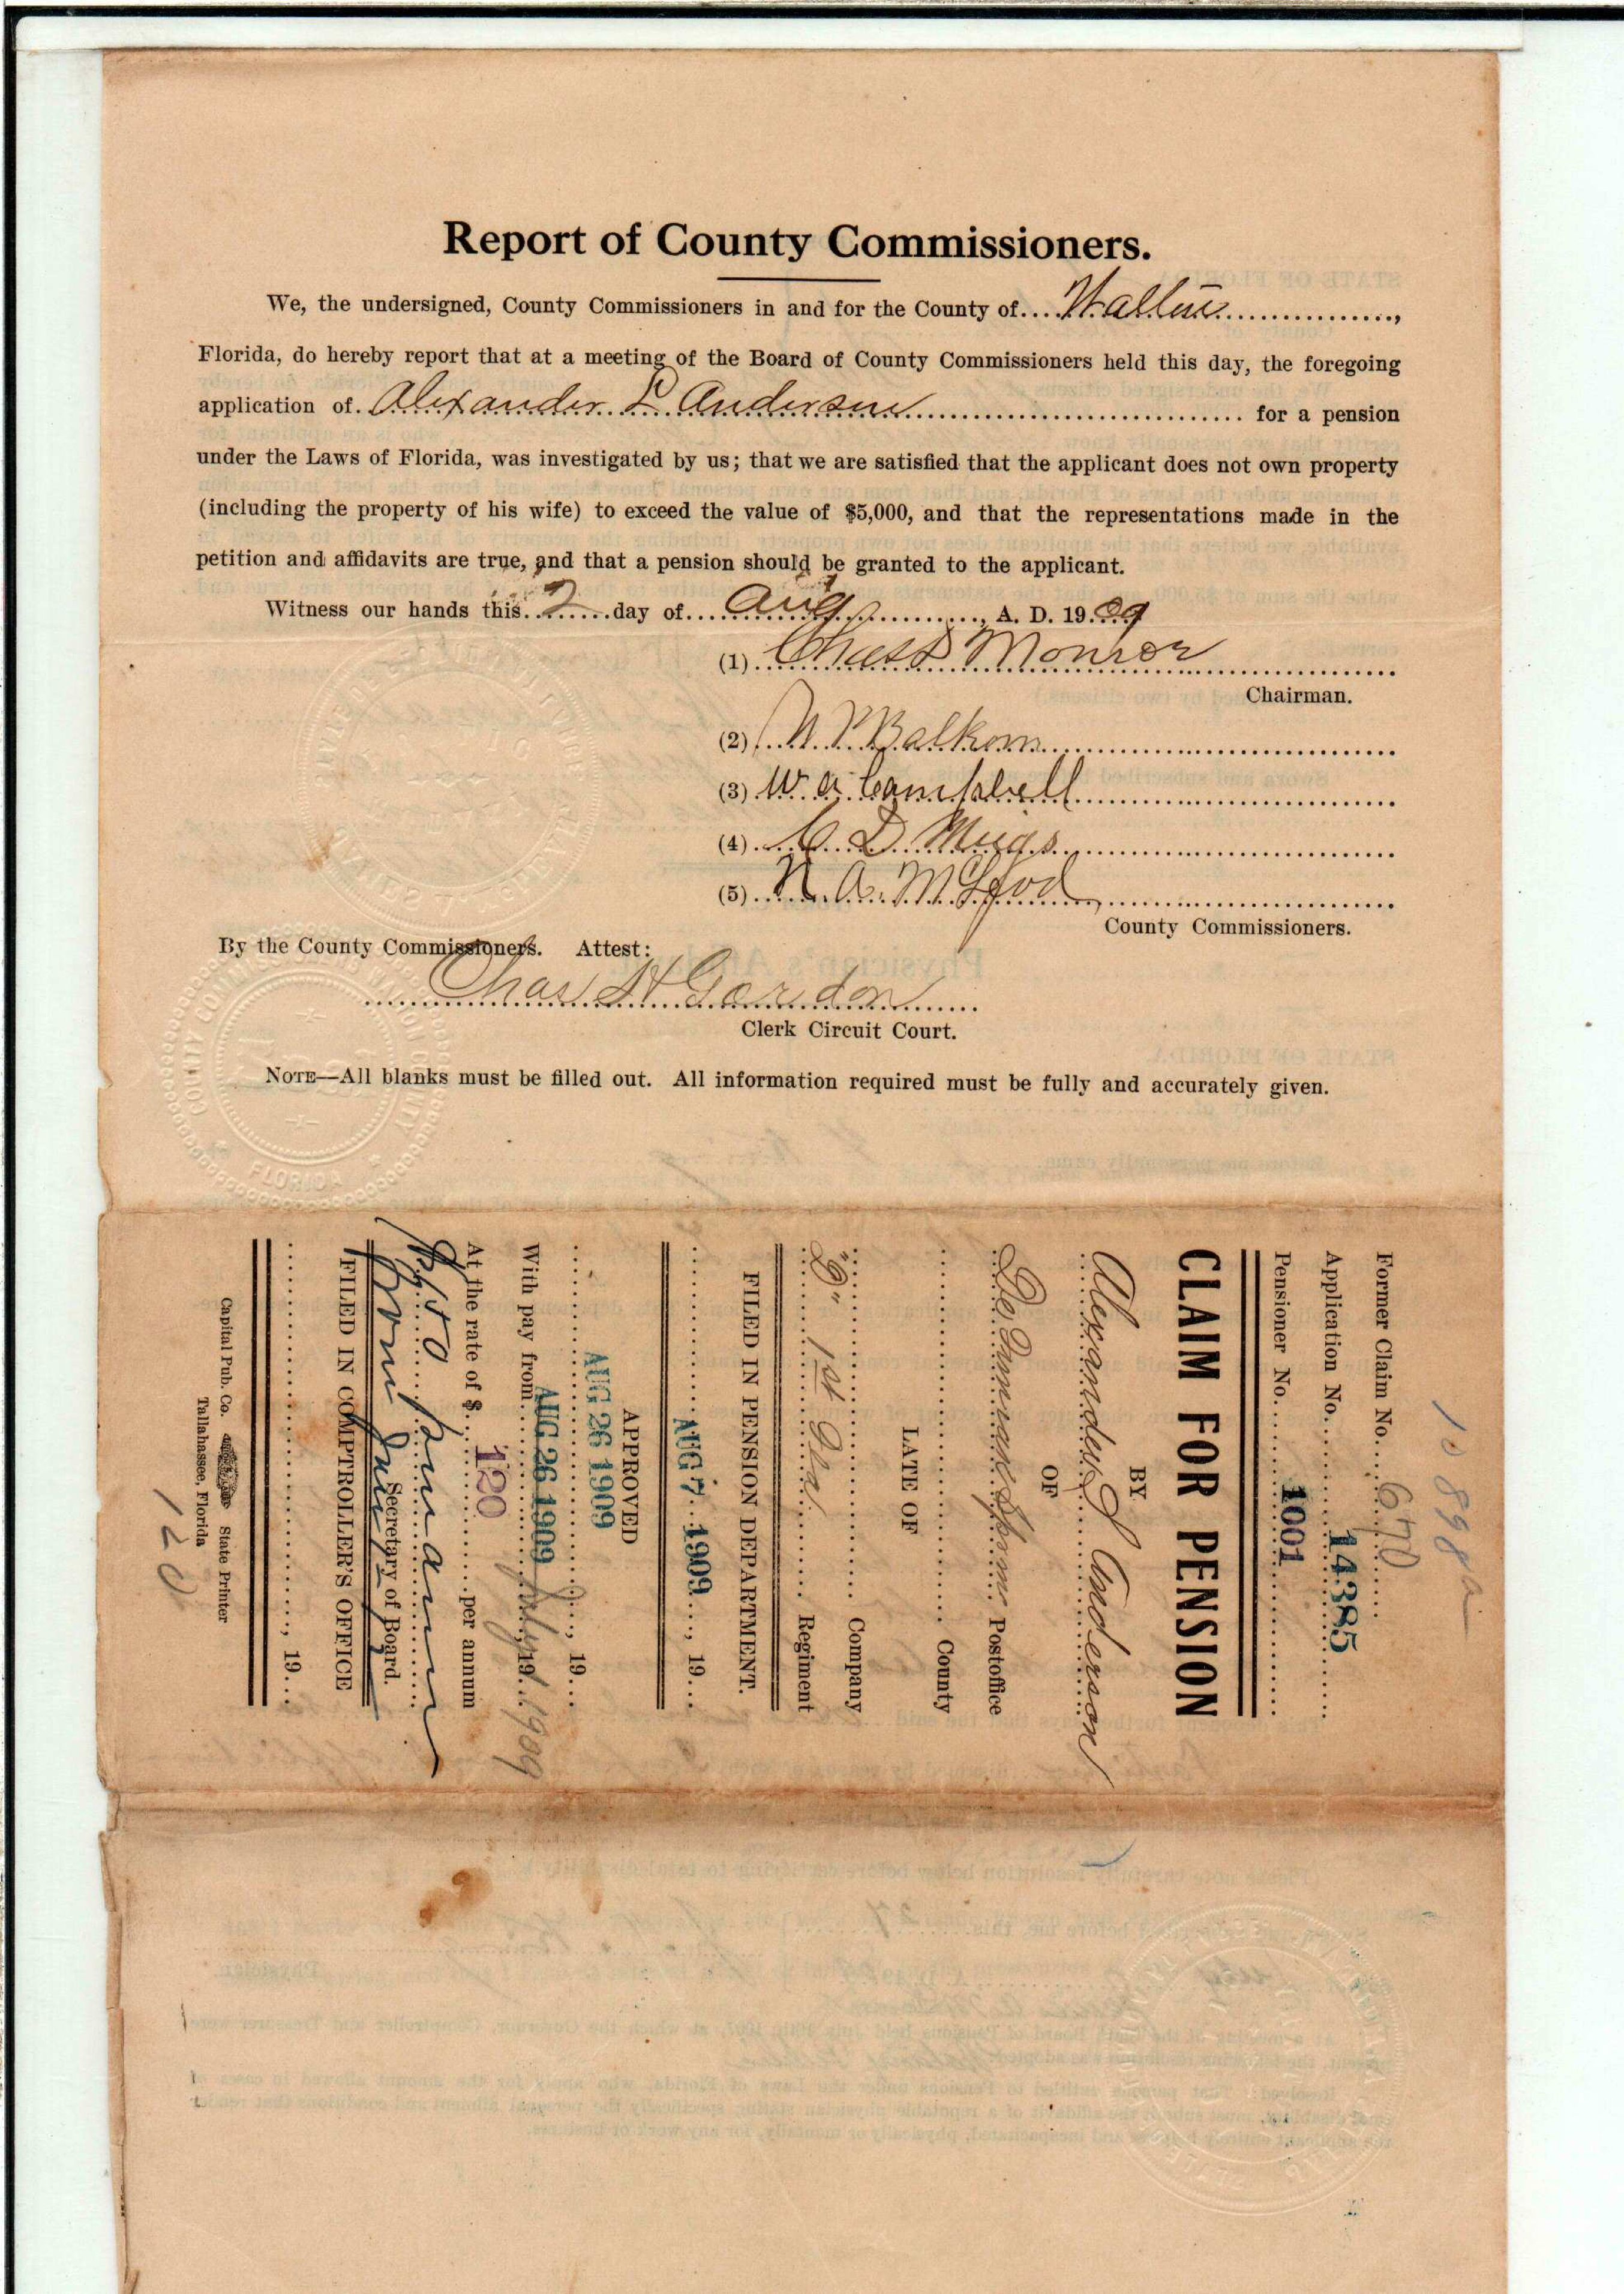 Report of County Commissioners.
We, the undersigned, County Commissioners in and for the County of.... Walton ...............,
Florida, do hereby report that at a meeting of the Board of County Commissioners held this day, the foregoing
application of. Alexander L Anderson ............................ for a pension
under the Laws of Florida, was investigated by us; that we are satisfied that the applicant does not own property
(including the property of his wife) to exceed the value of $5,000, and that the representations made in the
petition and affidavits are true, and that a pension should be granted to the applicant.
Witness our hands this. 2 ....day of.... Aug ..........., A. D. 19.09
(1) Monroe
Chairman.
(2) Balkom
(3) W. A. Campbell
(4) C D Meigs
(5) N. A. McLeod
County Commissioners.
By the County Commissioners. Attest:
Chas H Gordon
Clerk Circuit Court.
NOTE—All blanks must be filled out. All information required must be fully and accurately given.
COUNTY COMMISSIONERS WALTON COUNTY
FLORIDA
10898
Former Claim No.... 670
Application No. 14385
Pensioner No. 1001
CLAIM FOR PENSION
BY
Alexander L Anderson
OF
De Funiak Springs Postoffice
County
LATE OF
Company
"G" 1st Fla Regiment
FILED IN PENSION DEPARTMENT.
AUG 7 1909 , 19...
APPROVED
AUG 26 1909 , 19...
With pay from AUG 26 1909 July 1 19 1909
At the rate of $. 120 per annum
$150 per annum
Secretary of Board.
FILED IN COMPTROLLER'S OFFICE
, 19...
Capital Pub. Co. State Printer
Tallahassee, Florida
120